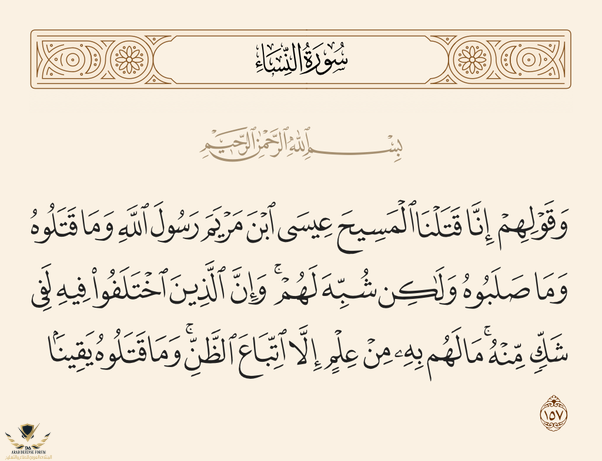 سُورَةُ النِّسَاءِ
بِسْمِ ٱللَّهِ ٱلرَّحْمَٰنِ ٱلرَّحِيمِ
وَقَوْلِهِمْ إِنَّا قَتَلْنَا ٱلْمَسِيحَ عِيسَى ٱبْنَ مَرْيَمَ رَسُولَ ٱللَّهِ وَمَا قَتَلُوهُ
وَمَا صَلَبُوهُ وَلَٰكِن شُبِّهَ لَهُمْ ۚ وَإِنَّ ٱلَّذِينَ ٱخْتَلَفُوا۟ فِيهِ لَفِى
شَكٍّ مِّنْهُ ۚ مَا لَهُم بِهِۦ مِنْ عِلْمٍ إِلَّا ٱتِّبَاعَ ٱلظَّنِّ ۚ وَمَا قَتَلُوهُ يَقِينًۢا
١٥٧
ARAB DEFENSE FORUM